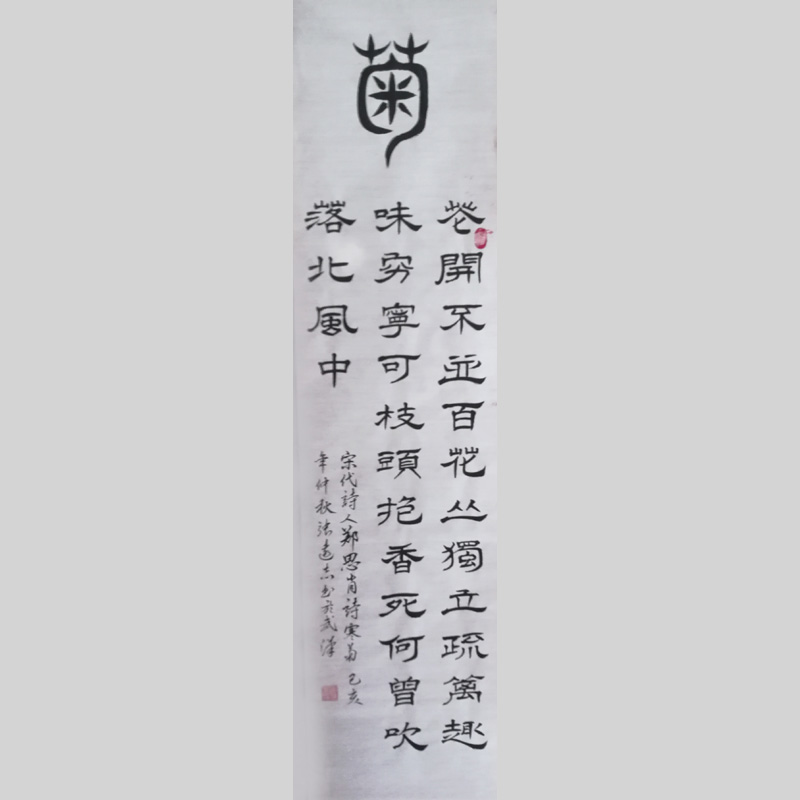 菊
花開不並百花丛獨立疏篱趣
味穷寧可枝頭抱香死何曾吹
落北風中
宋代詩人郑思肖詩寒菊 己亥
年仲秋張遠志书於武漢